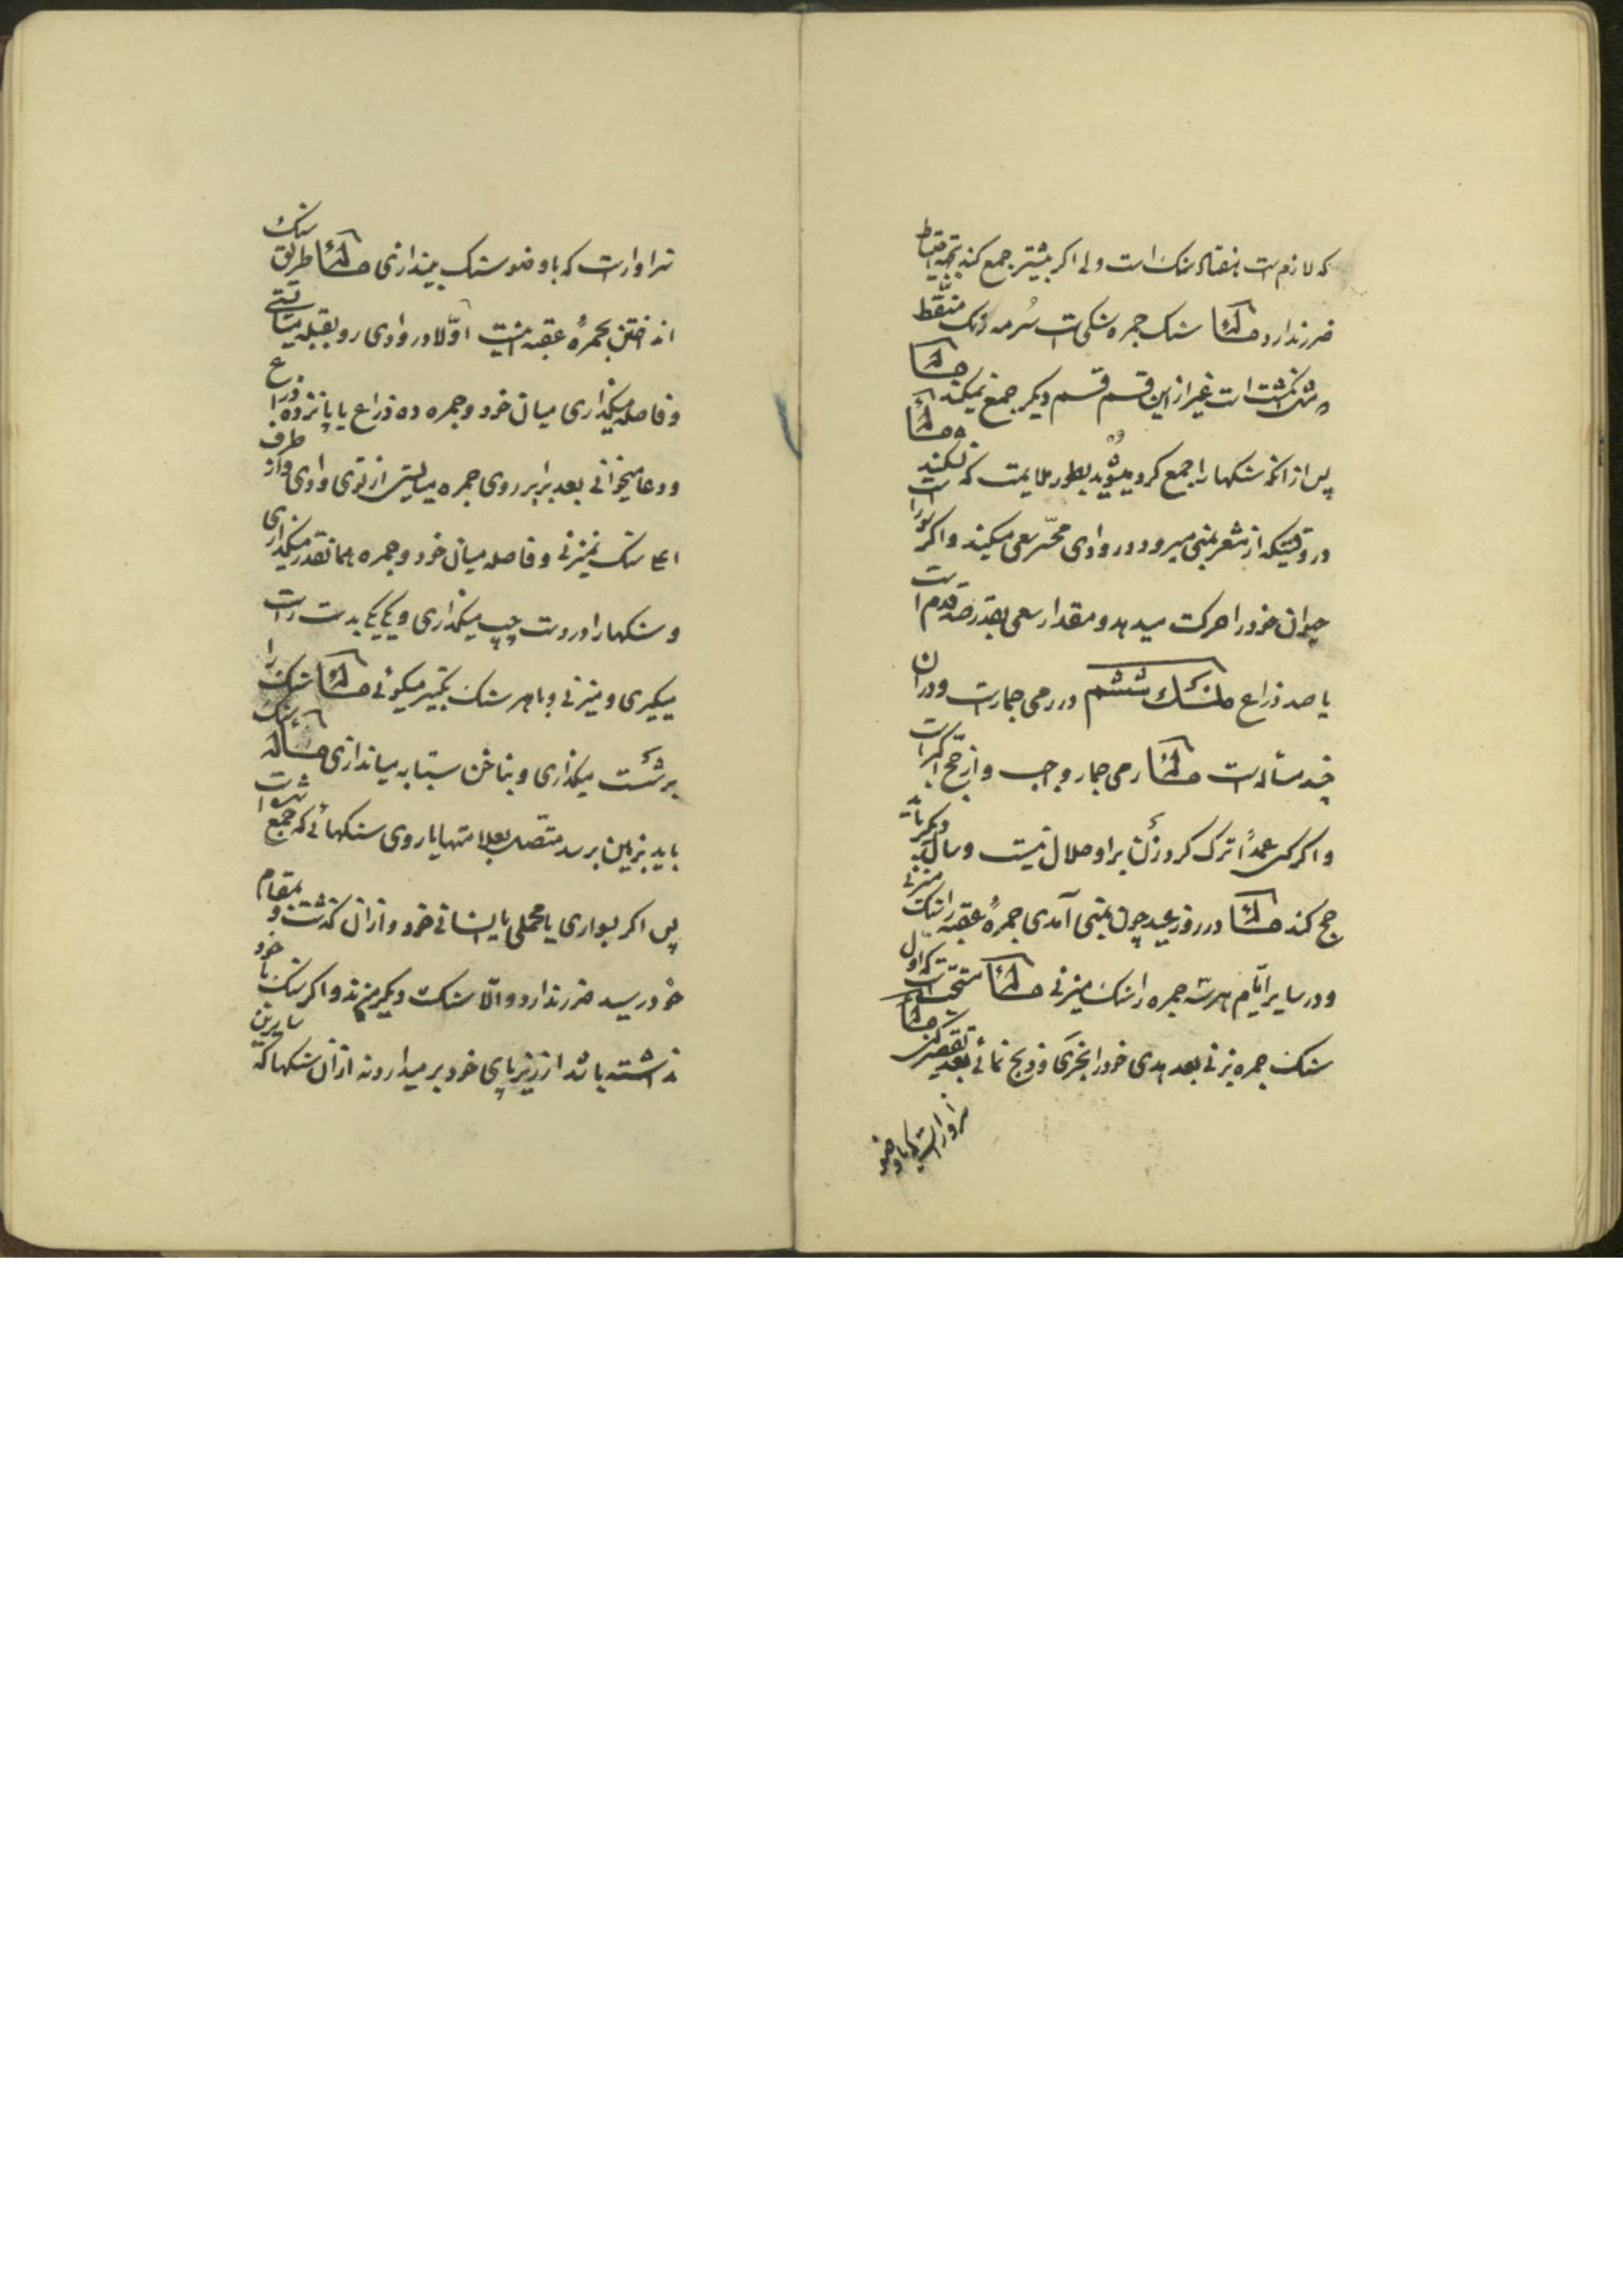 که لازم است هفتاد سنگ است ولی اکر بیشتر جمع کند بجهة احتیاط
ضرر ندارد مسألة سنک جمره سنکی است سُرمه رنک منقّط
غیر از این قسم قسم دیکر جمع نمیکند مسألة
پس از آنکه سنکها را جمع کرد میشوید بطور ملایمت که نشکند مسألة
در وقتیکه از مشعر بمنی میرود در وادی محسّر سعی میکند و اکر سوار است
حیوان خود را حرکت میدهد و مقدار سعی بقدر صد قدم است
یا صد ذراع منسک ششم در رمی جمار است و در آن
چند مسأله است مسألة رمی جمار واجب و از حج اکبر است
و اکر کسی عمداً ترک کرد زنان بر او حلال نیست و سال دیکر باید
حج کند مسألة در روز عید چون بمنی آمدی جمرهٔ عقبه را سنک میزنی
و در سایر ایّام هر سه جمره را سنک میزنی مسألة مستحبّ است که اول
سنک جمره بزنی بعد هدی خود را نحر کنی و ذبح نمائی بعد تقصیر کنی مسألة
سزاوار است که با وضو
سزاوار است که با وضو سنک بیندازی مسألة طریق سنک
انداختن بجمرهٔ عقبه اینست اوّلا در وادی رو بقبله میایستی
و فاصله میکذاری میان خود و جمره ده ذراع یا پانزده ذراع
و دعا میخوانی بعد برابر روی جمره میایستی از توی وادی و از طرف
اعلا سنک نمیزنی و فاصله میان خود و جمره همانقدر میکذاری
و سنکها را در دست چپ میکذاری و یکی یکی بدست راست
میکیری و میزنی و با هر سنک تکبیر میکوئی مسألة سنک را
بر شست میکذاری و بناخن سبّابه میاندازی مسألة سنک
باید بزمین برسد متّصل بعلامتها یا روی سنکهائی که جمع شده است
پس اکر بسواری یا محملی یا انسانی خورد و از آن کذشت و بمقام
خود رسید ضرر ندارد و الّا سنک دیکر میزند و اکر سنک با خود
نداشته باشد از زیر پای خود بر میدارد نه از آن سنکها که سایرین